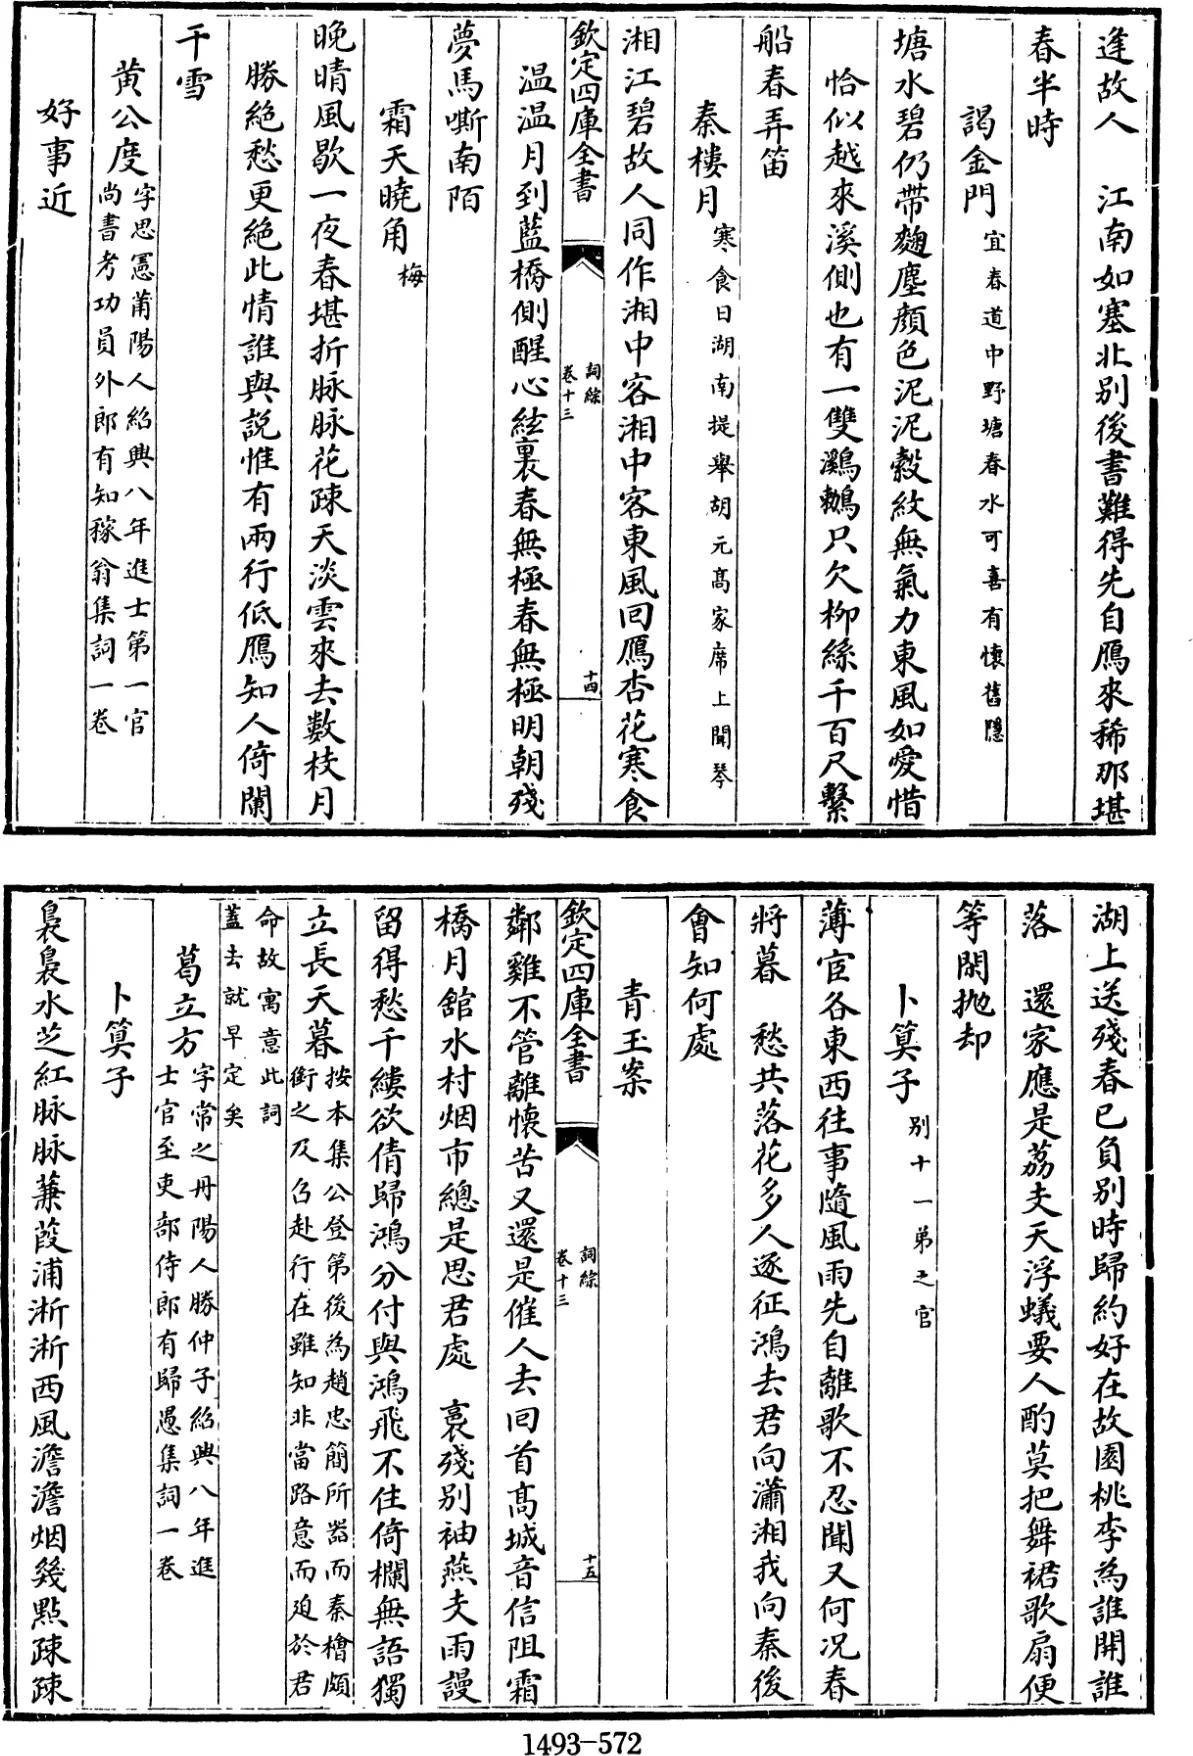 逢故人　江南如塞北别後書難得先自鴈來稀那堪
春半時
謁金門宜春道中野塘春水可喜有懷舊隱
塘水碧仍帶麴塵顔色泥泥縠紋無氣力東風如愛惜
恰似越來溪側也有一雙鸂鶒只欠柳絲千百尺繫
船春弄笛
秦樓月寒食日湖南提舉胡元髙家席上聞琴
湘江碧故人同作湘中客湘中客東風回鴈杏花寒食
欽定四庫全書
詞綜
卷十三
十四
温温月到藍橋側醒心絃裏春無極春無極明朝殘
夢馬嘶南陌
霜天曉角梅
晚晴風歇一夜春堪折脉脉花疎天淡雲來去數枝月
勝絶愁更絶此情誰與説惟有兩行低鴈知人倚闌
干雪
黄公度字思憲莆陽人紹興八年進士第一官
尚書考功員外郎有知稼翁集詞一卷
好事近
湖上送殘春已負别時歸約好在故園桃李為誰開誰
落　還家應是荔支天浮蟻要人酌莫把舞裙歌扇便
等閑抛却
卜算子别十一弟之官
薄宦各東西往事隨風雨先自離歌不忍聞又何况春
將暮　愁共落花多人逐征鴻去君向瀟湘我向秦後
會知何處
青玉案
欽定四庫全書
詞綜
卷十三
十五
鄰雞不管離懷苦又還是催人去回首髙城音信阻霜
橋月舘水村烟市總是思君處　裛殘别袖燕支雨謾
留得愁千縷欲倩歸鴻分付與鴻飛不住倚欄無語獨
立長天暮按本集公登第後為趙忠簡所器而秦檜頗
銜之及召赴行在雖知非當路意而廹於君
命故寓意此詞
蓋去就早定矣
葛立方字常之丹陽人勝仲子紹興八年進
士官至吏部侍郎有歸愚集詞一卷
卜算子
裊裊水芝紅脉脉蒹葭浦淅淅西風澹澹烟幾點疎疎
1493-572